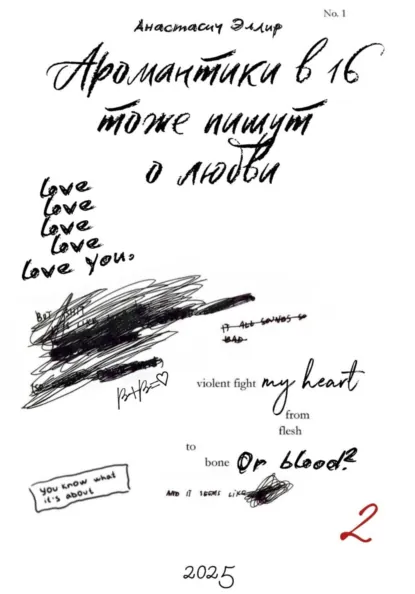 No. 1
Анастасич Эллир
Аромантики в 16
тоже пишут
о любви
love
love
love
love
love you.
BUT SHIT
IT ALL SOUNDS SO
BAD.
B+B=♡
violent fight my heart
from
flesh
to
bone Or blood?
AND IT SEEMS LIKE
you know what
it's about
2
2025